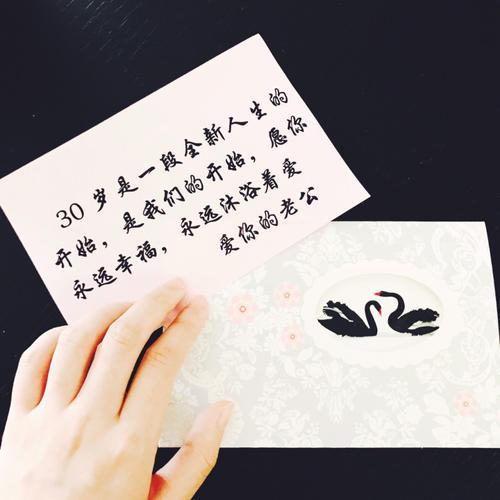 30 岁是一段全新人生的
开始，是我们的开始，愿你
永远幸福，永远沐浴着爱
爱你的老公